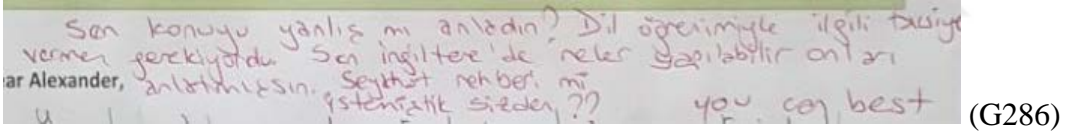 Sen konuyu yanlış mı anladın? Dil öğrenimiyle ilgili tavsiye
vermen gerekiyordu. Sen ingiltere'de neler yapılabilir onları
ear Alexander, anlatmışsın. Seyahat rehberi mi
istemiştik sizden??
you can best
(G286)